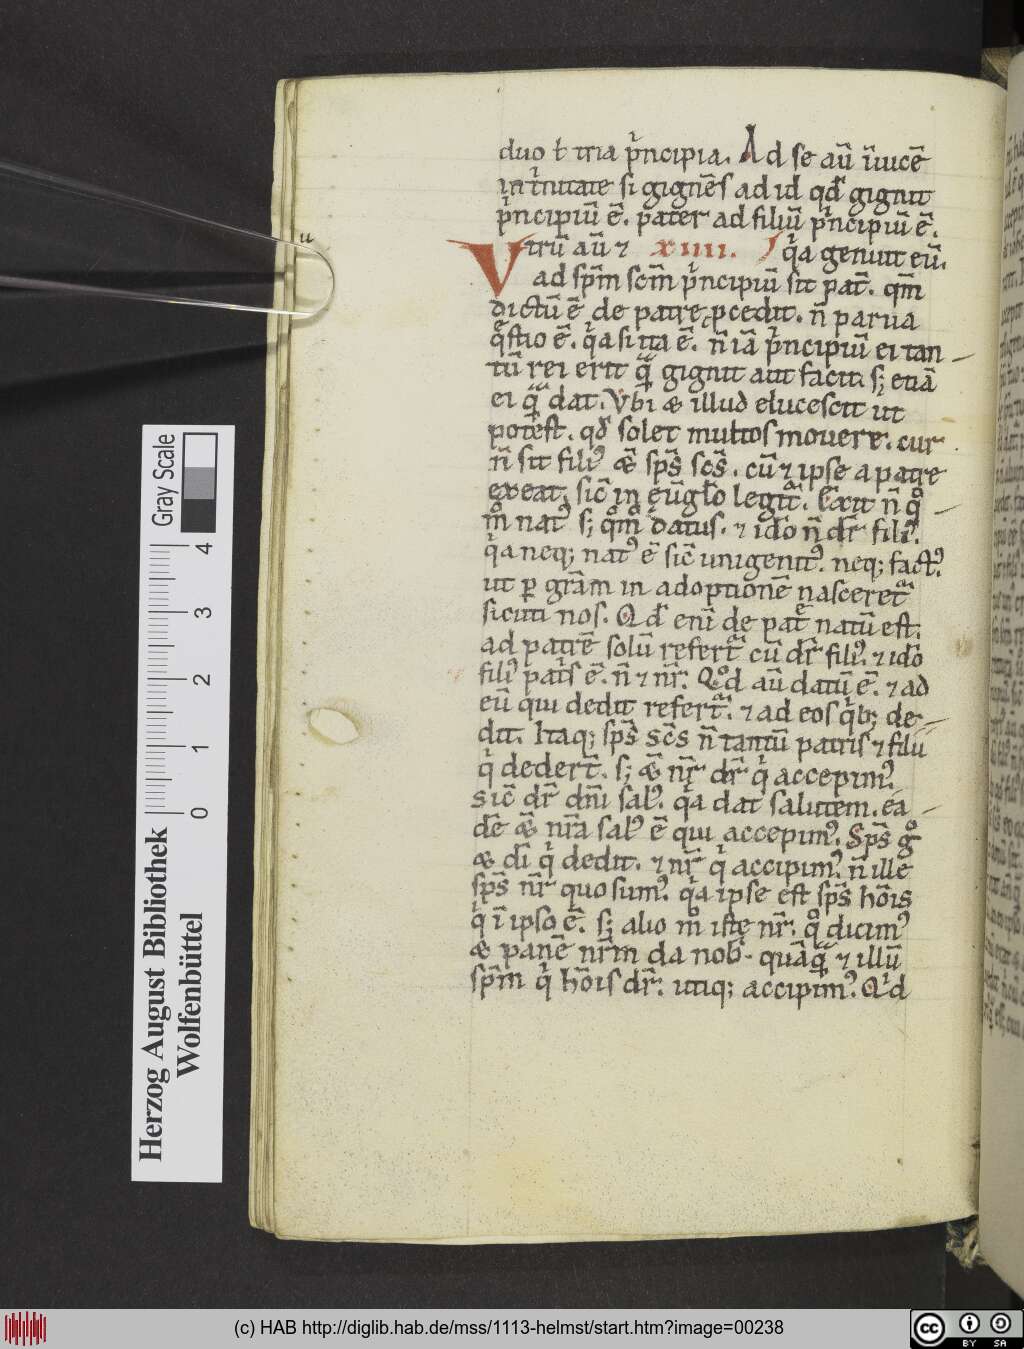 duo ł tria p'ncipia. Ad se aū īuicē
in t'nitate si gignēs ad id qd̄ gignit
p'ncipiū ē. pater ad filiū p'ncipiū ē.
Vtrū aū ⁊ xiiii. q'a genuit eū.
ad sp̄m sc̄m p'ncipiū sit pat̄. qm̄
dictū ē de patre pcedit. n̄ parua
q̄stio ē. q'a si ita ē. n̄ iā p'ncipiū ei tan
tū rei erit q̄ gignit aut facit. s; etiā
ei q̄ dat. Vbi & illud elucescit ut
potest. qd̄ solet multos mouere. cur
n̄ sit fili' & sp̄s sc̄s. cū ⁊ ipse a patre
exeat, sic̄ in eūglo legit̄. Exit n̄ q°
m° nat' s; q°m° datus. ⁊ ido n̄ dr̄ fili'.
q'a neq; nat' ē sic̄ unigenit'. neq; fact'.
ut p gr̄am in adoptionē nasceret̄
sicuti nos. Qd̄ eni de pat̄e natū est.
ad patrē solū refert̄ cū dr̄ fili'. ⁊ ido
fili' pat's ē. n̄ ⁊ nr̄. Qd aū datū ē. ⁊ ad
eū qui dedit refert̄. ⁊ ad eos q'b; de
dit. Itaq; sp̄s sc̄s n̄ tantū patris ⁊ filii
q' dedert̄. s; & nr̄ dr̄ q' accepim'.
Sic̄ dr̄ dn̄i sal'. q'a dat salutem. ea
dē & nr̄a sal' ē qui accepim'. Sp̄s g°
& di q' dedit. ⁊ nr̄ q' accipim'. n̄ ille
sp̄s nr̄ quo sum'. q'a ipse est sp̄s hōis
q' ī ipso ē. s; alio m° iste nr̄. q° dicim'
& panē nr̄m da nob'. quāq̄ ⁊ illū
sp̄m q' hōis dr̄. utiq; accipim'. Q'd
u
Herzog August Bibliothek
Wolfenbüttel
0 1 2 3 4
Gray Scale
(c) HAB http://diglib.hab.de/mss/1113-helmst/start.htm?image=00238
cc BY SA